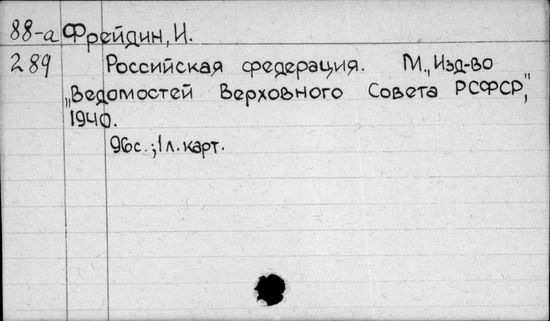 88-а Фрейдин, И.
289 Российская федерация. М., Изд-во
„Ведомостей Верховного Совета РСФСР",
1940.
96с.; 1 л. карт.